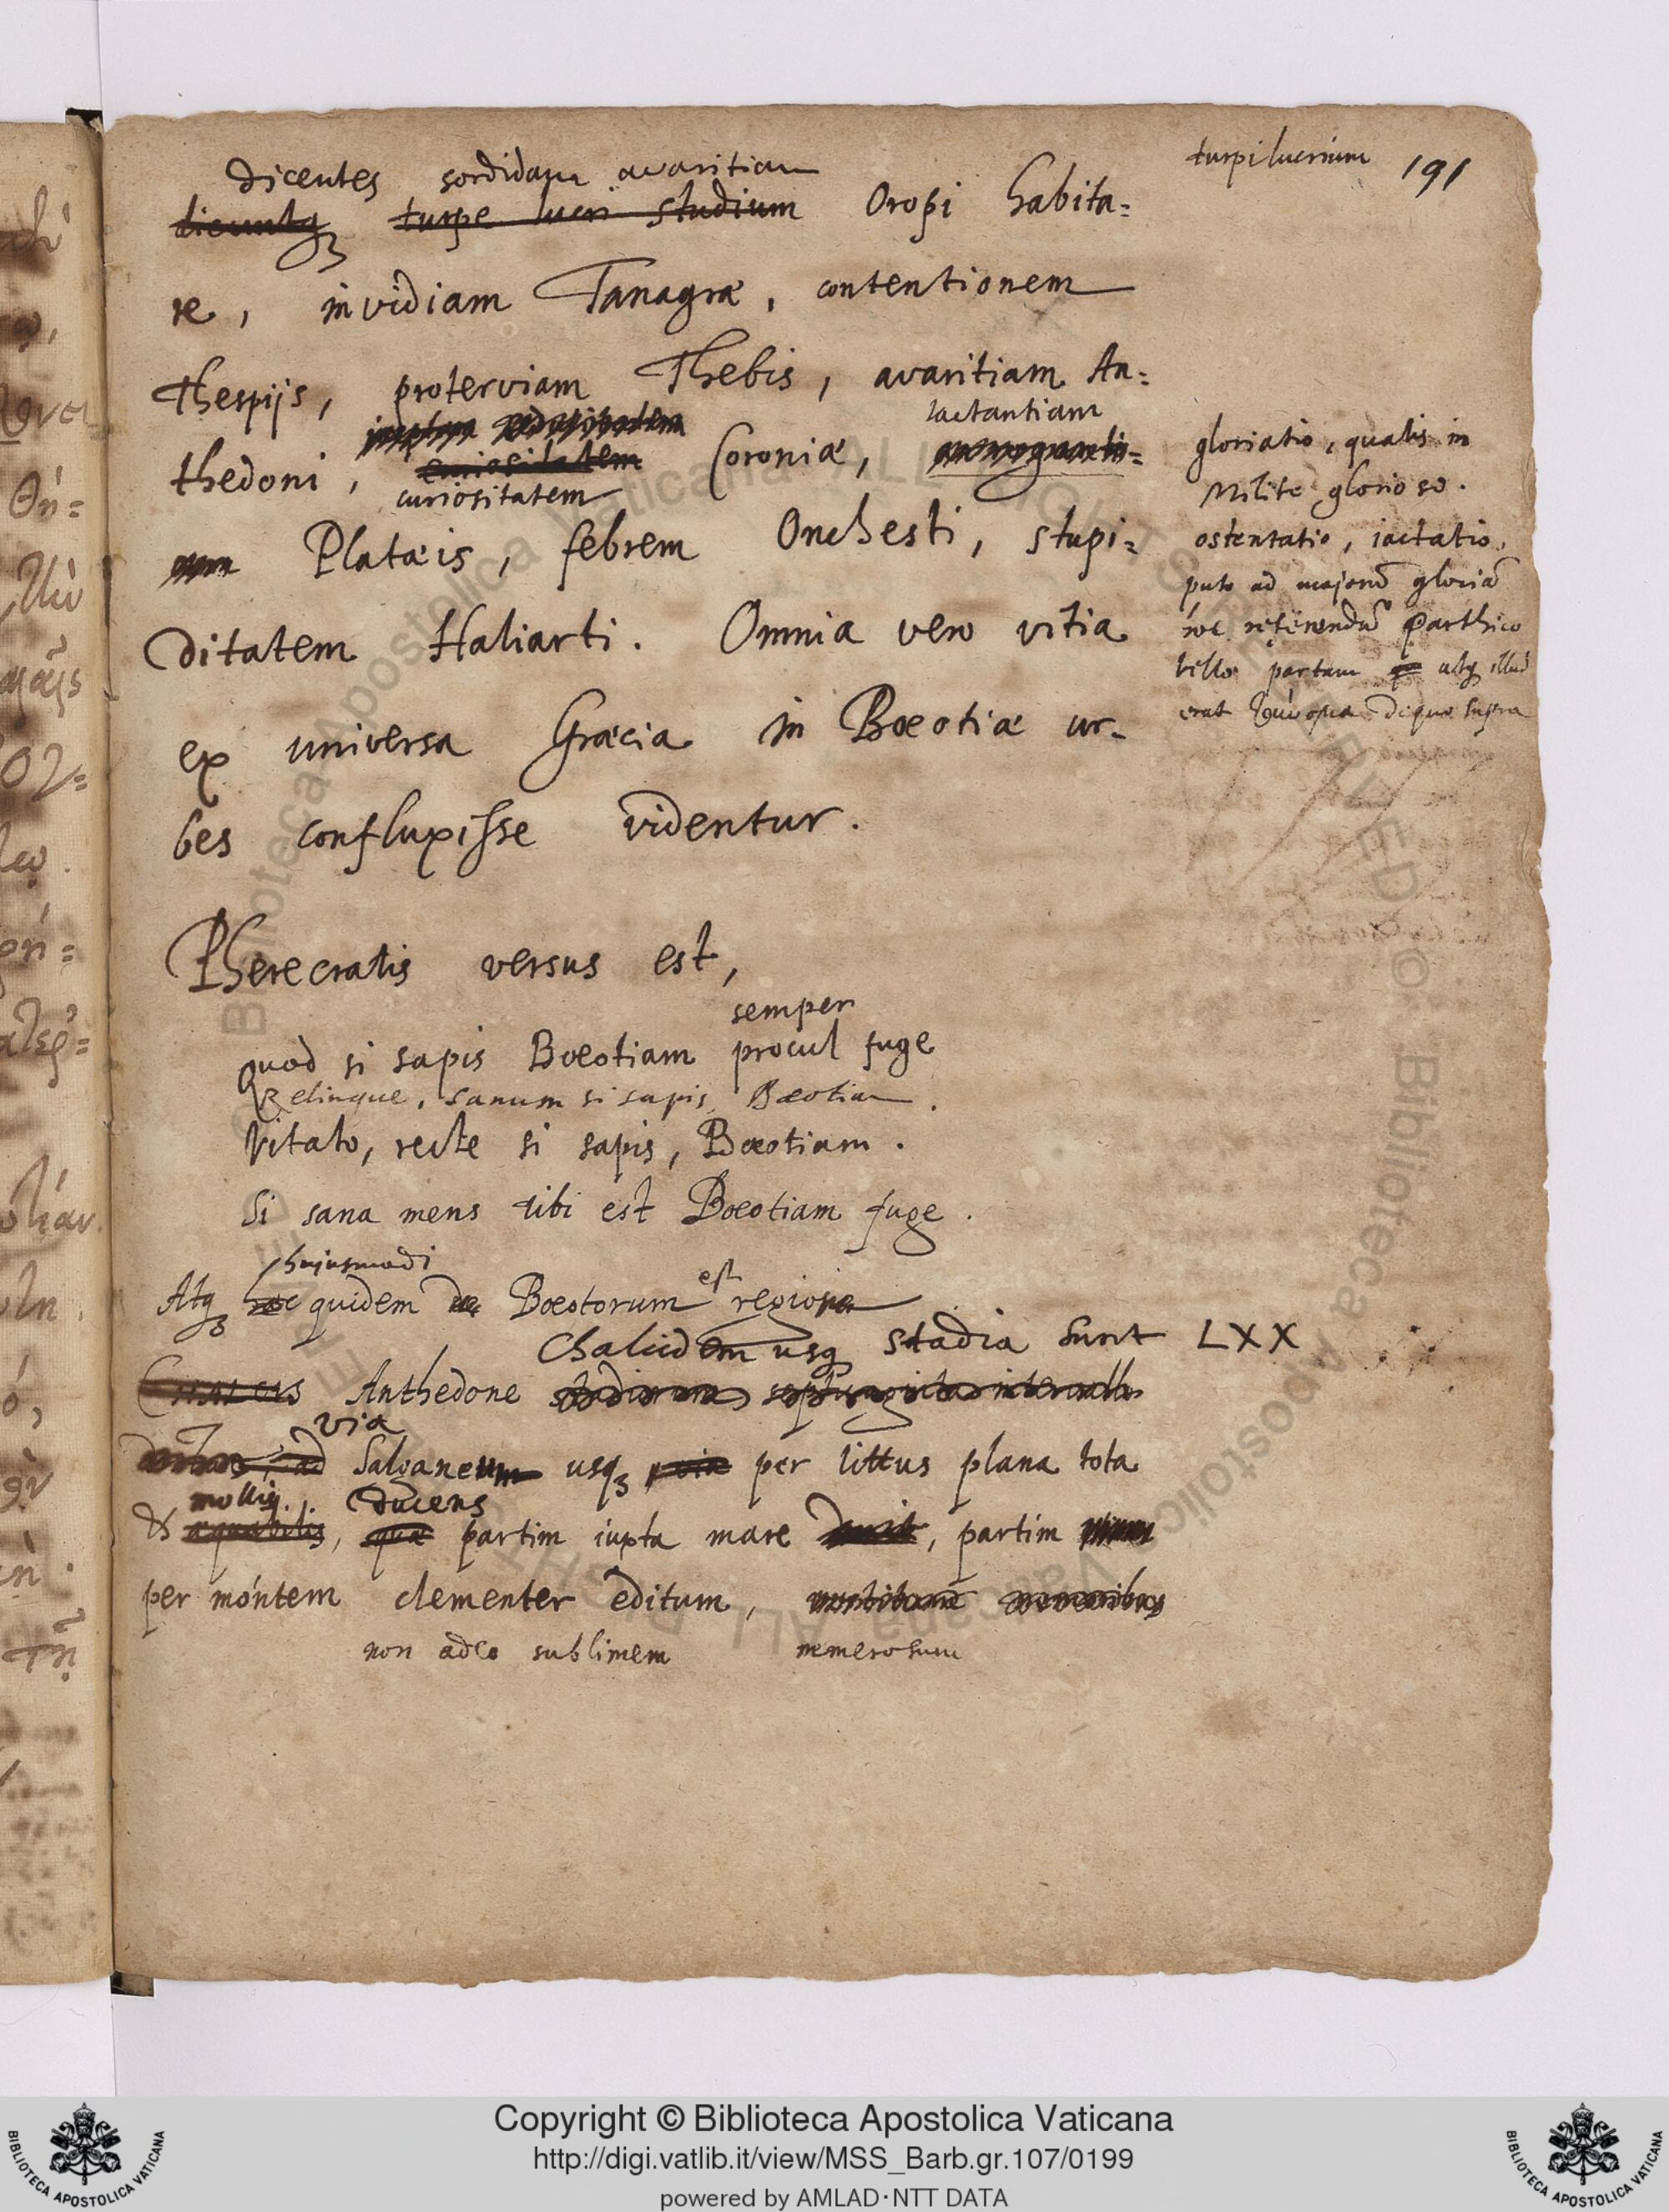 turpilucrium 191
dicentes sordidam avaritiam
dicuntq3 turpe lucri studium Oropi habita=
re, invidiam Tanagræ, contentionem
Thespijs, proterviam Thebis, avaritiam An=
iactantiam
thedoni, curiositatem Coroniæ,
curiositatem
Platæis, febrem Onchesti, stupi=
ditatem Haliarti. Omnia vero vitia
ex universa Græcia in Bœotiæ ur-
bes confluxisse videntur.
gloriatio, qualis in
Milite glorioso.
ostentatio, iactatio,
puto ad majorē gloriā
hoc referendū Parthico
bello partam atq3 illud
erat de quo supra
Pherecratis versus est,
semper
Quod si sapis Bœotiam procul fuge
Relinque, sanum si sapis, Bœotiam.
Vitato, recte si sapis, Bœotiam.
Si sana mens tibi est Bœotiam fuge.
hujusmodi est
Atq3 hoc quidem de Bœotorum regione
Chalcidem usq3 stadia sunt LXX
Anthedone stadiorum septuaginta intervallo
via
ad Salganeum usq3 via per littus plana tota
mollis. ducens
& æquabilis, quæ partim iuxta mare ducit, partim
per montem clementer editum,
non adeo sublimem nemerosum
Copyright © Biblioteca Apostolica Vaticana
http://digi.vatlib.it/view/MSS_Barb.gr.107/0199
powered by AMLAD·NTT DATA
BIBLIOTECA APOSTOLICA VATICANA
BIBLIOTECA APOSTOLICA VATICANA